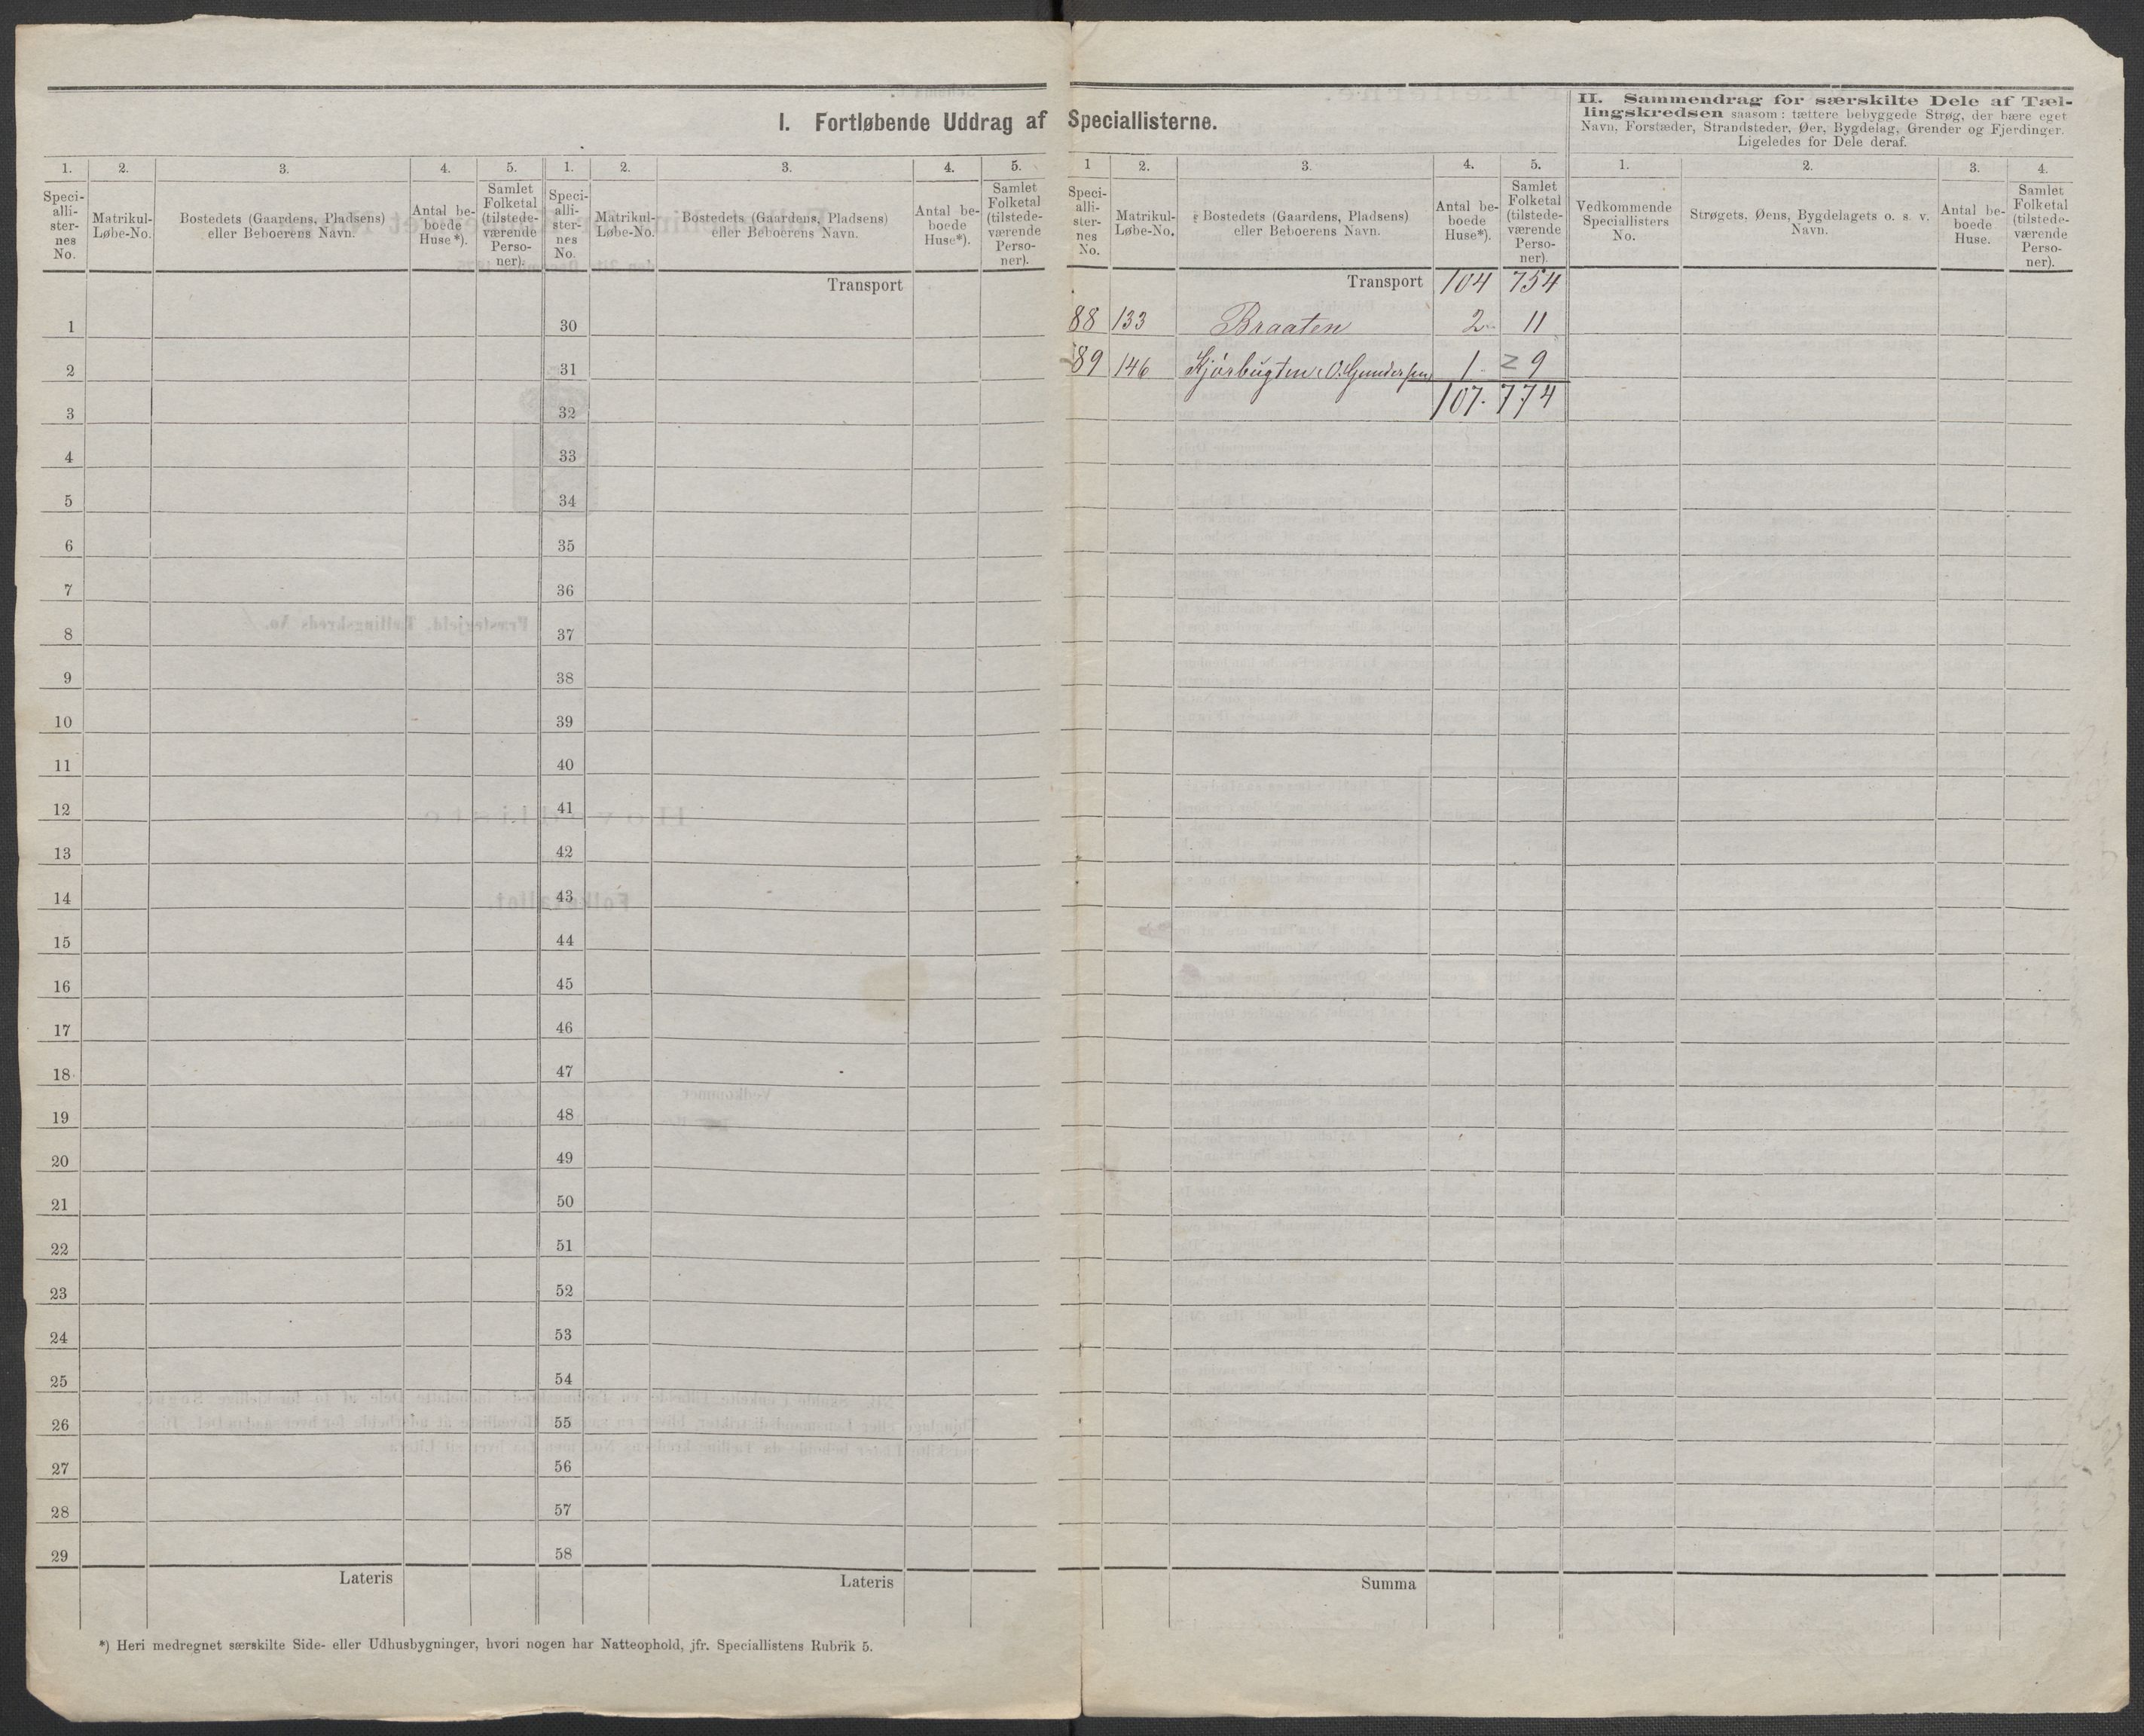 I. Fortløbende Uddrag af Speciallisterne.
II. Sammendrag for særskilte Dele af Tæl-
lingskredsen saasom: tættere bebyggede Strøg, der bære eget
Navn, Forstæder, Strandsteder, Øer, Bygdelag, Grender og Fjerdinger.
Ligeledes for Dele deraf.
1. 2. 3. 4. 5. 1. 2. 3. 4. 5. 1 2. 3. 4. 5. 1. 2. 3. 4.
Speci-
alli-
ster-
nes
No.
Matrikul-
Løbe-No.
Bostedets (Gaardens, Pladsens)
eller Beboerens Navn.
Antal be-
boede
Huse*).
Samlet
Folketal
(tilstede-
værende
Perso-
ner).
Speci-
alli-
ster-
nes
No.
Matrikul-
Løbe-No.
Bostedets (Gaardens, Pladsens)
eller Beboerens Navn.
Antal be-
boede
Huse*).
Samlet
Folketal
(tilstede-
værende
Perso-
ner).
Speci-
alli-
ster-
nes
No.
Matrikul-
Løbe-No.
Bostedets (Gaardens, Pladsens)
eller Beboerens Navn.
Antal be-
boede
Huse*).
Samlet
Folketal
(tilstede-
værende
Perso-
ner).
Vedkommende
Speciallisters
No.
Strøgets, Øens, Bygdelagets o. s. v.
Navn.
Antal be-
boede
Huse.
Samlet
Folketal
(tilstede-
værende
Perso-
ner).
Transport
Transport 104 754
1 30 88 133 Braaten 2 11
2 31 89 146 Kjörbugten O. Gundersen 1 2 9
3 32 107 774
4 33
5 34
6 35
7 36
8 37
9 38
10 39
11 40
12 41
13 42
14 43
15 44
16 45
17 46
18 47
19 48
20 49
21 50
22 51
23 52
24 53
25 54
26 55
27 56
28 57
29 58
Lateris Lateris Summa
*) Heri medregnet særskilte Side- eller Udhusbygninger, hvori nogen har Natteophold, jfr. Speciallistens Rubrik 5.